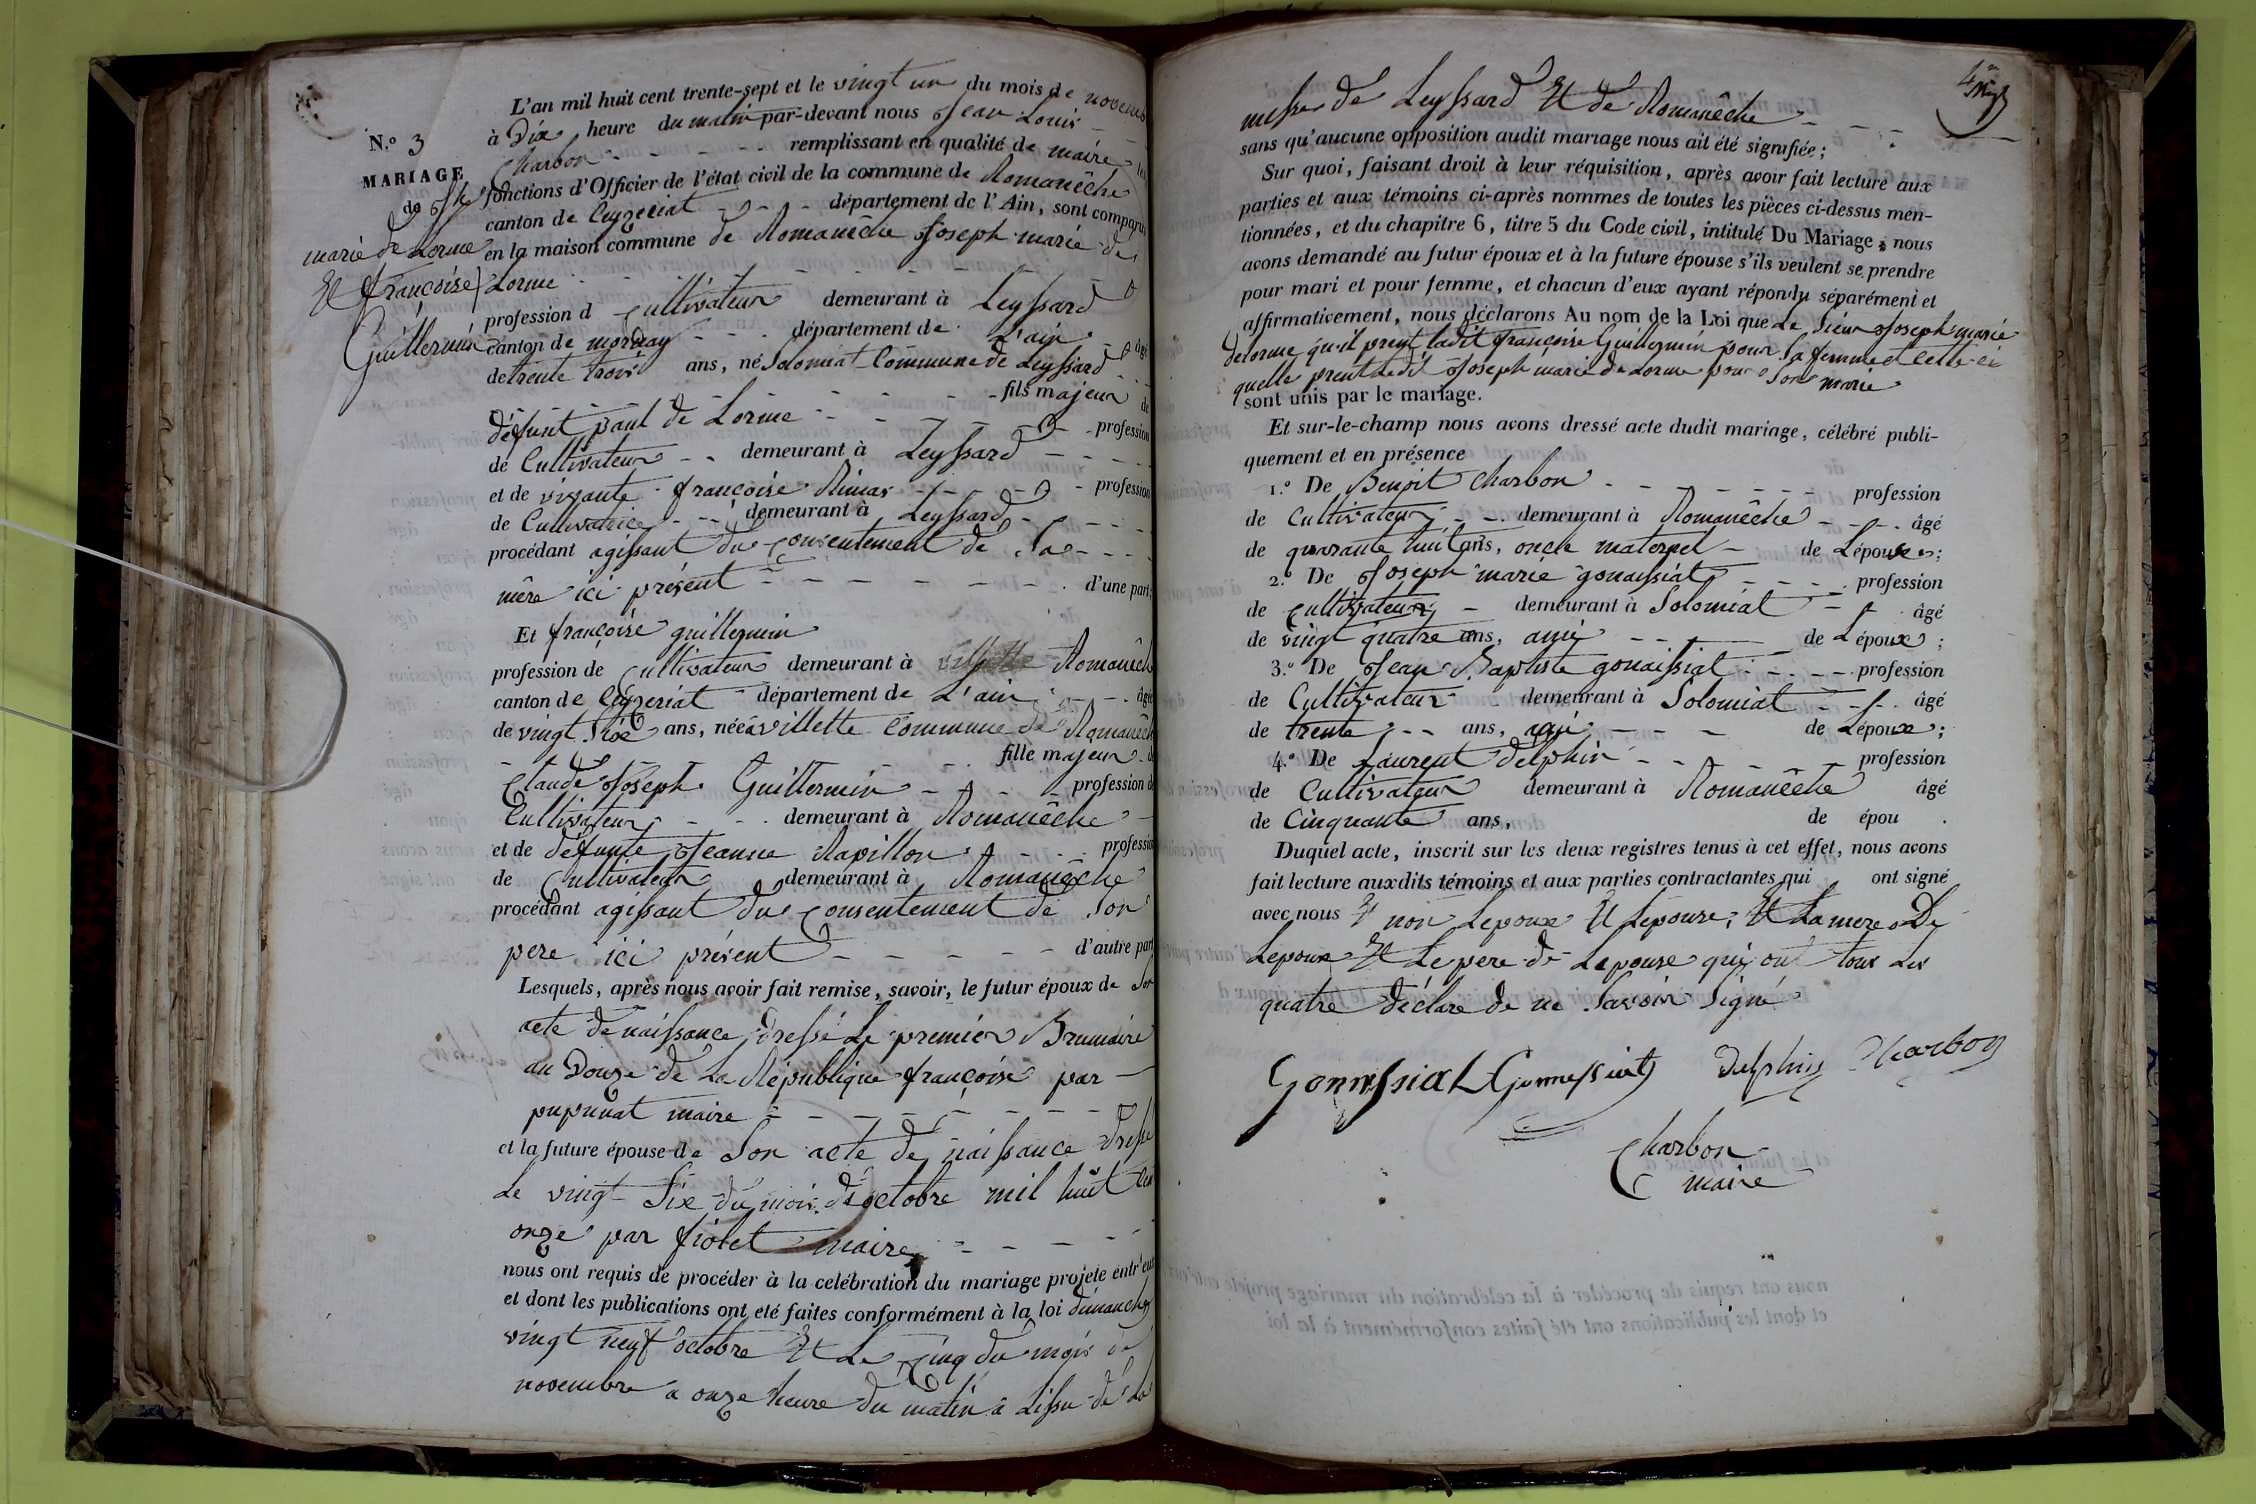 N.o 3
MARIAGE
de Jh
marie de Lorme
Et françoise
Guillermin
L'an mil huit cent trente-sept et le vingt un du mois de novemb
à Dix heure du matin par-devant nous Jean Louis
Charbon remplissant en qualité de maire les
fonctions d'Officier de l'état civil de la commune de Romanêche
canton de Ceyzeriat département de l'Ain, sont comparus
en la maison commune de Romanêche Joseph marie de
Lorme
profession d cultivateur demeurant à Leyssard
canton de mornay département de L'ain âgé
de trente trois ans, né Solomiat Commune de Leyssard
fils majeur de
défunt paul de Lorme profession
de Cultivateur demeurant à Leyssard
et de vivante françoise profession
de Cultivatrice demeurant à Leyssard
procédant agissant du consentement de sa
mère ici présent d'une part;
Et françoise guillermin
profession de cultivateur demeurant à Romanêch
canton de Ceyzeriat département de L'ain âgé
de vingt six ans, née à villette commune de Romanêch
fille majeur d
Claude Joseph Guillermin profession de
Cultivateur demeurant à Romanêche
et de défunte Jeanne Ravillon profession
de Cultivateur demeurant à Romanêche
procédant agissant du consentement de son
pere ici présent d'autre part
Lesquels, après nous avoir fait remise, savoir, le futur époux de son
acte de naissance dressé Le premier Brumaire
an Douze de La République françoise par
pupunat maire
et la future épouse de son acte de naissance dressé
Le vingt Six du mois d'octobre mil huit cen
onze par fiolet maire
nous ont requis de procéder à la celébration du mariage projeté entr'eux
et dont les publications ont eté faites conformément à la loi dimanche
vingt neuf octobre Et Le cinq du mois de
novembre a onze heure du matin a Lissu de La
messe de Leyssard Et de Romanêche
sans qu'aucune opposition audit mariage nous ait été signifiée;
Sur quoi, faisant droit à leur réquisition, après avoir fait lecture aux
parties et aux témoins ci-après nommes de toutes les pièces ci-dessus men-
tionnées, et du chapitre 6, titre 5 du Code civil, intitulé Du Mariage, nous
avons demandé au futur époux et à la future épouse s'ils veulent se prendre
pour mari et pour femme, et chacun d'eux ayant répondu séparément et
affirmativement, nous déclarons Au nom de la Loi que Le Sieur Joseph marie
delorme qu'il prent ladit françoise Guillermin pour sa femme et celle ci
quelle prent ledit Joseph marie de Lorme pour son marie
sont unis par le mariage.
Et sur-le-champ nous avons dressé acte dudit mariage, célébré publi-
quement et en présence
1.o De Benoit Charbon profession
de Cultivateur demeurant à Romanêche âgé
de quarante huit ans, oncle maternel de L'épouse;
2.o De Joseph marie gonaissiat profession
de cultivateur demeurant à Solomiat âgé
de vingt quatre ans, ami de L'époux;
3.o De Jean Baptiste gonaissiat profession
de Cultivateur demeurant à Solomiat âgé
de trente ans, ami de L'époux;
4.o De Laurent delphin profession
de Cultivateur demeurant à Romanêche âgé
de Cinquante ans, de épou .
Duquel acte, inscrit sur les deux registres tenus à cet effet, nous avons
fait lecture auxdits témoins et aux parties contractantes qui ont signé
avec nous Et non Lepoux Et Lepouse, Et La mere De
Lepoux Et Le pere de Lepouse qui ont tous Les
quatre déclare de ne savoir Signé
Gonnessiat Gonnessiat Delphin Charbon
Charbon
maire